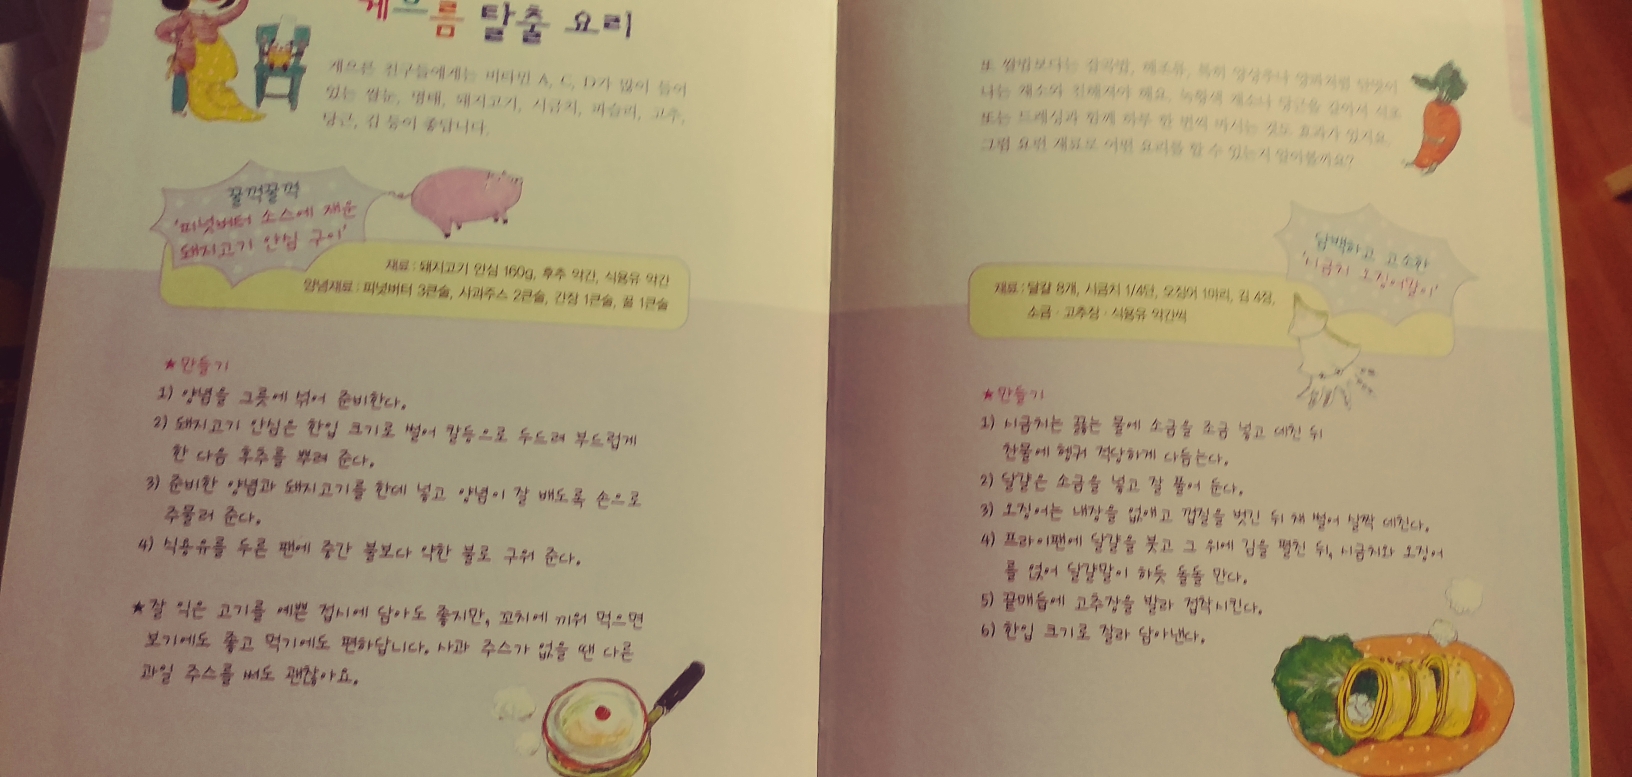 게으름 탈출 요리
게으른 친구들에게는 비타민 A, C, D가 많이 들어
있는 쌀눈, 명태, 돼지고기, 시금치, 파슬리, 고추,
당근, 김 등이 좋답니다.
꿀꺽꿀꺽
'피넛버터 소스에 재운
돼지고기 안심 구이'
재료 : 돼지고기 안심 160g, 후추 약간, 식용유 약간
양념재료 : 피넛버터 3큰술, 사과주스 2큰술, 간장 1큰술, 꿀 1큰술
★만들기
1) 양념을 그릇에 섞어 준비한다.
2) 돼지고기 안심은 한입 크기로 썰어 칼등으로 두드려 부드럽게
한 다음 후추를 뿌려 준다.
3) 준비한 양념과 돼지고기를 한데 넣고 양념이 잘 배도록 손으로
주물러 준다.
4) 식용유를 두른 팬에 중간 불보다 약한 불로 구워 준다.
★잘 익은 고기를 예쁜 접시에 담아도 좋지만, 꼬치에 끼워 먹으면
보기에도 좋고 먹기에도 편하답니다. 사과 주스가 없을 땐 다른
과일 주스를 써도 괜찮아요.
또 쌀밥보다는 잡곡밥, 해조류, 특히 양상추나 양파처럼 단맛이
나는 채소와 친해져야 해요. 녹황색 채소나 당근을 갈아서 식초
또는 드레싱과 함께 하루 한 번씩 마시는 것도 효과가 있지요.
그럼 요런 재료로 어떤 요리를 할 수 있는지 알아볼까요?
담백하고 고소한
'시금치 오징어말이'
재료 : 달걀 8개, 시금치 1/4단, 오징어 1마리, 김 4장,
소금 · 고추장 · 식용유 약간씩
★만들기
1) 시금치는 끓는 물에 소금을 조금 넣고 데친 뒤
찬물에 헹궈 적당하게 다듬는다.
2) 달걀은 소금을 넣고 잘 풀어 둔다.
3) 오징어는 내장을 없애고 껍질을 벗긴 뒤 채 썰어 살짝 데친다.
4) 프라이팬에 달걀을 붓고 그 위에 김을 펼친 뒤, 시금치와 오징어
를 얹어 달걀말이 하듯 돌돌 만다.
5) 끝매듭에 고추장을 발라 접착시킨다.
6) 한입 크기로 잘라 담아낸다.